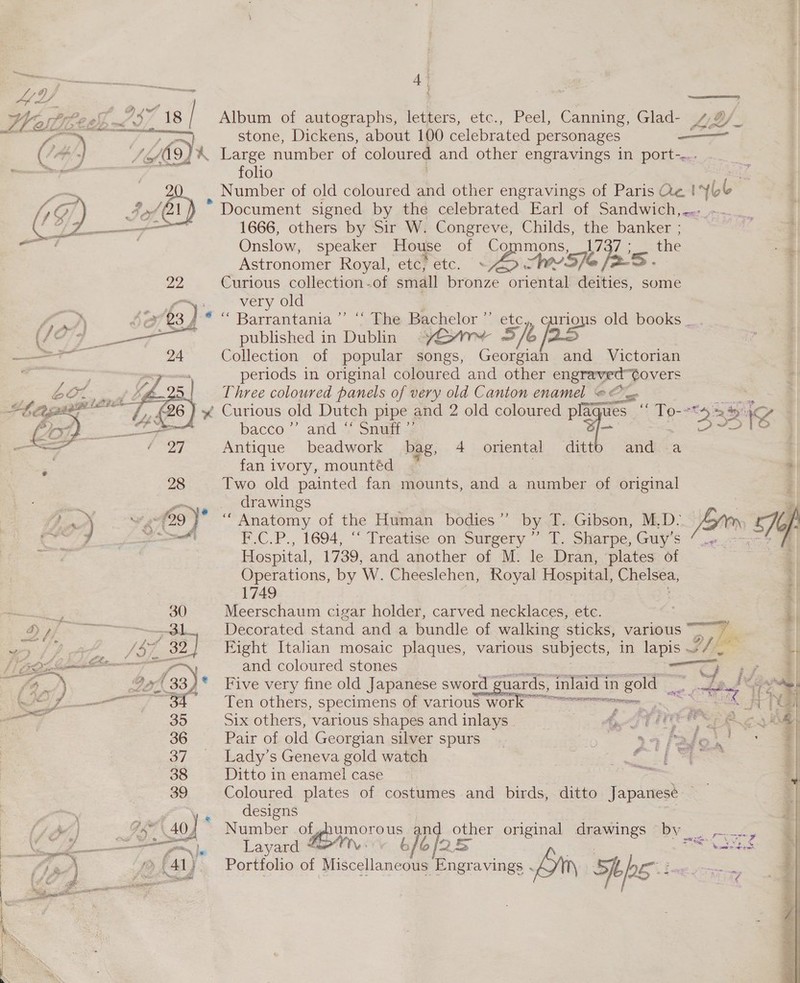 4
18 Album of autographs, letters, etc., Peel, Canning, Glad-
stone, Dickens, about 100 celebrated personages
19 Large number of coloured and other engravings in port-
folio
20 Number of old coloured and other engravings of Paris
21 * Document signed by the celebrated Earl of Sandwich,
1666, others by Sir W. Congreve, Childs, the banker ;
Onslow, speaker House of Commons, 1737 ; the
Astronomer Royal, etc, etc.
22 Curious collection of small bronze oriental deities, some
very old
23 * “ Barrantania ” “ The Bachelor ” etc., curious old books
published in Dublin 5/6/25
24 Collection of popular songs, Georgian and Victorian
periods in original coloured and other engraved covers
25 Three coloured panels of very old Canton enamel
26 Curious old Dutch pipe and 2 old coloured plaques “ To-
bacco ” and “ Snuff ”
27 Antique beadwork bag, 4 oriental ditto and a
fan ivory, mounted
28 Two old painted fan mounts, and a number of original
drawings
29 * “ Anatomy of the Human bodies ” by T. Gibson, M.D.
F.C.P., 1694, “ Treatise on Surgery ” T. Sharpe, Guy’s
Hospital, 1739, and another of M. le Dran, plates of
Operations, by W. Cheeslehen, Royal Hospital, Chelsea,
1749
30 Meerschaum cigar holder, carved necklaces, etc.
31 Decorated stand and a bundle of walking sticks, various
32 Eight Italian mosaic plaques, various subjects, in lapis
and coloured stones
33 * Five very fine old Japanese sword guards, inlaid in gold
34 Ten others, specimens of various work
35 Six others, various shapes and inlays
36 Pair of old Georgian silver spurs
37 Lady’s Geneva gold watch
38 Ditto in enamel case
39 Coloured plates of costumes and birds, ditto Japanese
designs
40 * Number of humorous and other original drawings by
Layard 6/6/25
41 Portfolio of Miscellaneous Engravings